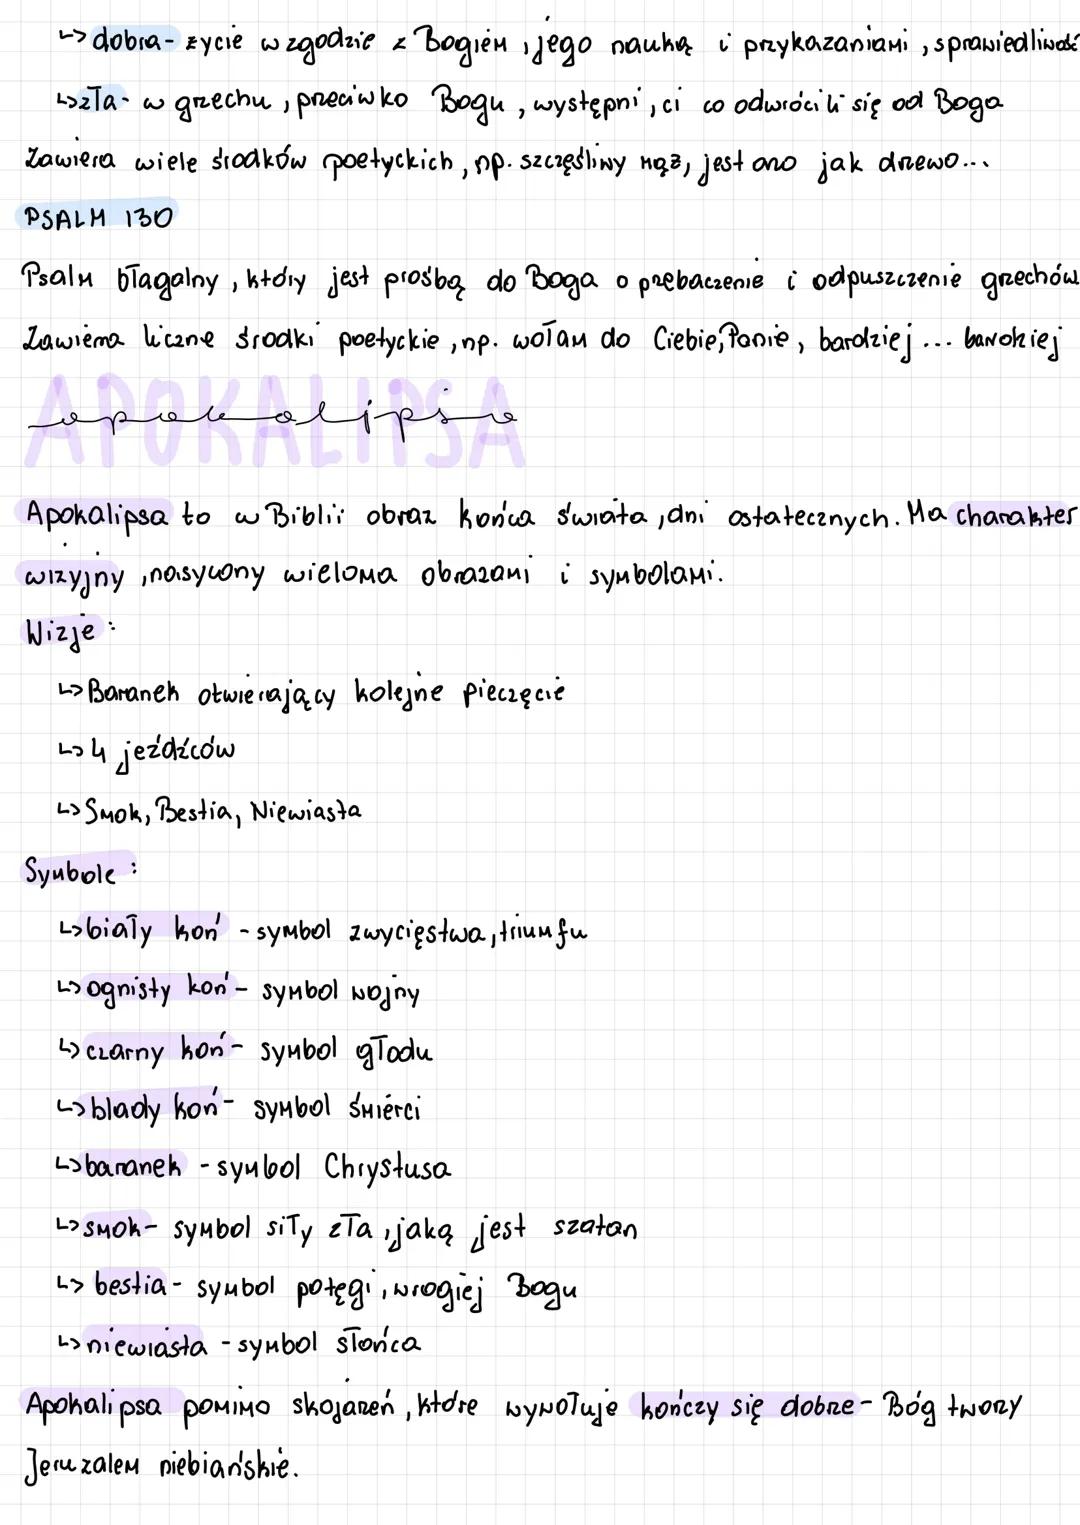 ↳ dobra - życie w zgodzie z Bogiem, jego nauką i przykazaniami, sprawiedliwość
↳ zła - w grzechu, przeciwko Bogu, występni, ci co odwrócili się od Boga
Zawiera wiele środków poetyckich, np. szczęśliwy mąż, jest ono jak drzewo...
PSALM 130
Psalm błagalny, który jest prośbą do Boga o przebaczenie i odpuszczenie grzechów
Zawiera liczne środki poetyckie, np. wołam do Ciebie, Panie, bardziej ... bardziej
APOKALIPSA
apokalipsa
Apokalipsa to w Biblii obraz końca świata, dni ostatecznych. Ma charakter
wizyjny, nasycony wieloma obrazami i symbolami.
Wizje:
↳ Baranek otwierający kolejne pieczęcie
↳ 4 jeźdźców
↳ Smok, Bestia, Niewiasta
Symbole:
↳ biały koń - symbol zwycięstwa, triumfu
↳ ognisty koń - symbol wojny
↳ czarny koń - symbol głodu
↳ blady koń - symbol śmierci
↳ baranek - symbol Chrystusa
↳ smok - symbol siły zła, jaką jest szatan
↳ bestia - symbol potęgi, wrogiej Bogu
↳ niewiasta - symbol słońca
Apokalipsa pomimo skojarzeń, które wywołuje kończy się dobrze - Bóg tworzy
Jeruzalem niebiańskie.